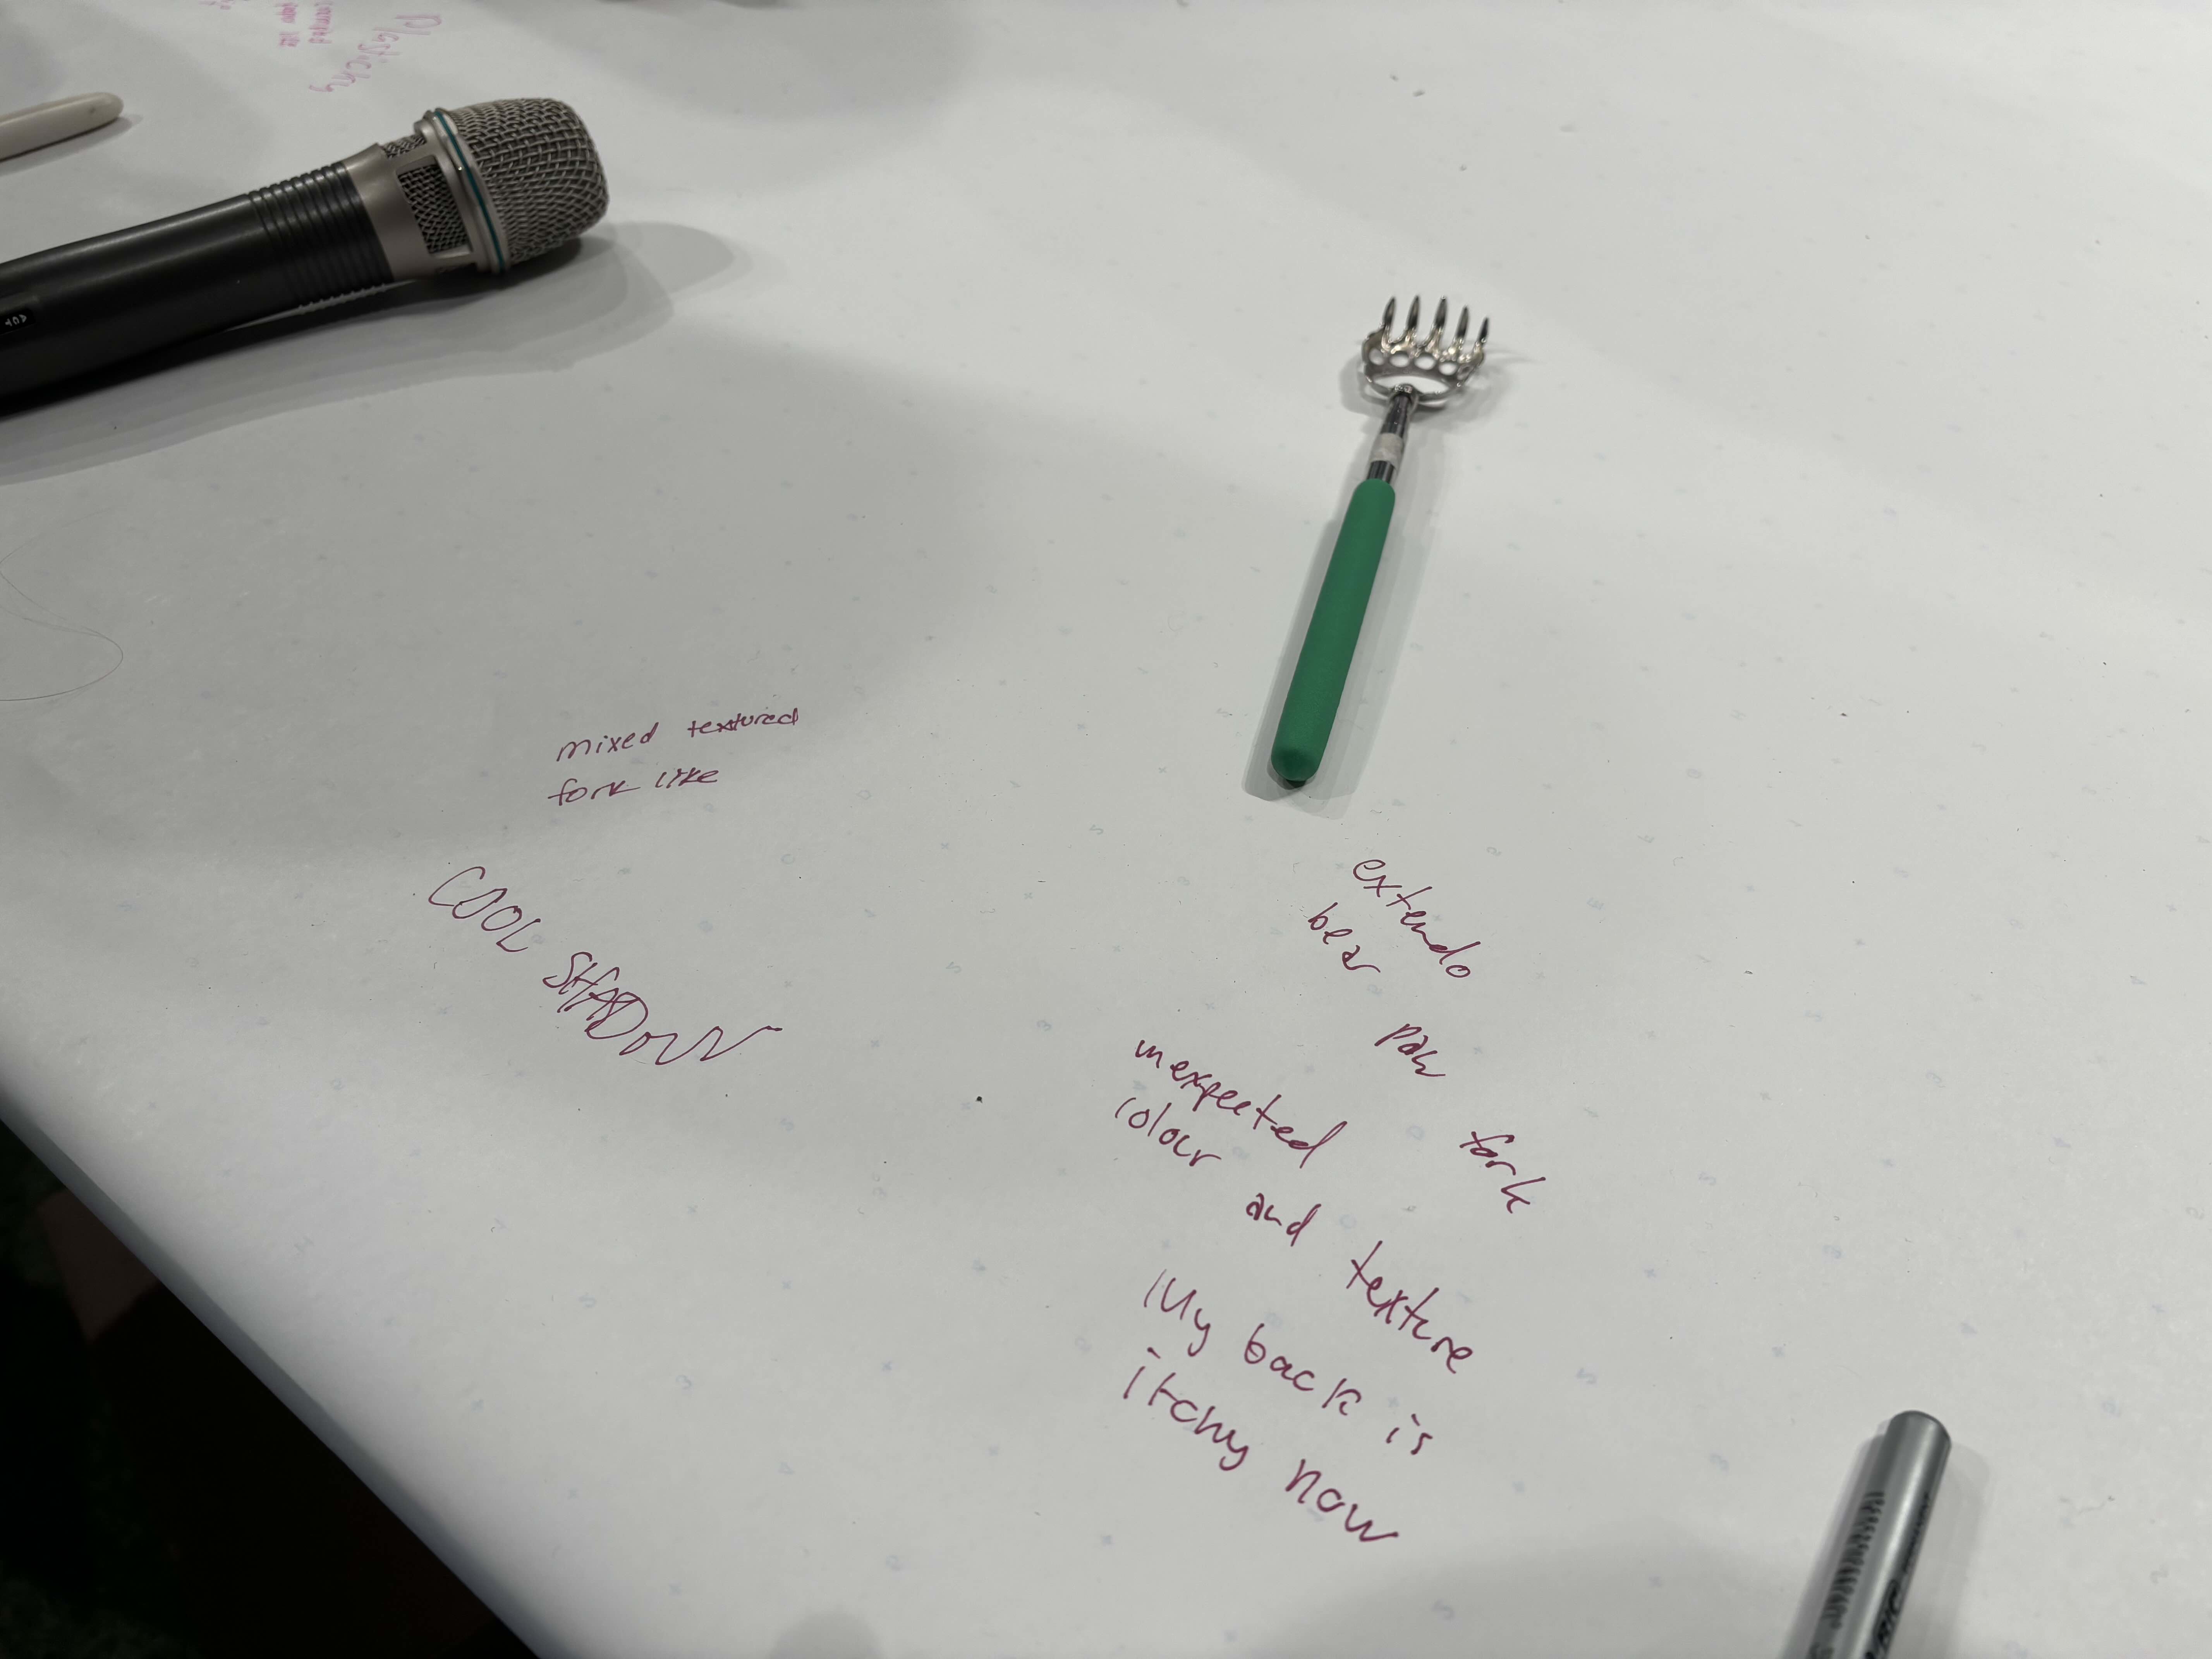 Plastichy
mixed textured
fork like
COOL SHADOW
extendo
bear paw fork
unexpected
colour and texture
My back is
itchy now